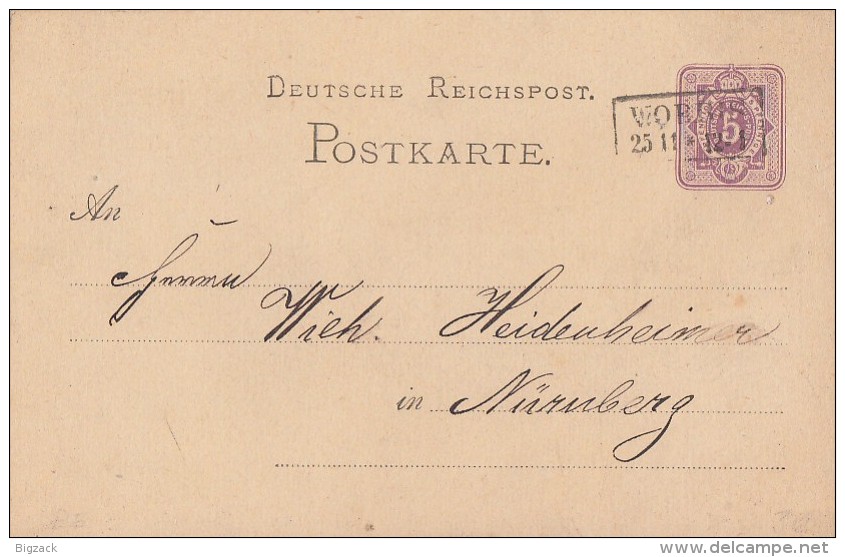 DEUTSCHE REICHSPOST.
POSTKARTE.
5
25 11 * 12-1
An
Herrn
Wilh. Heidenheimer
in Nürnberg
Bigzack
delcampe.net